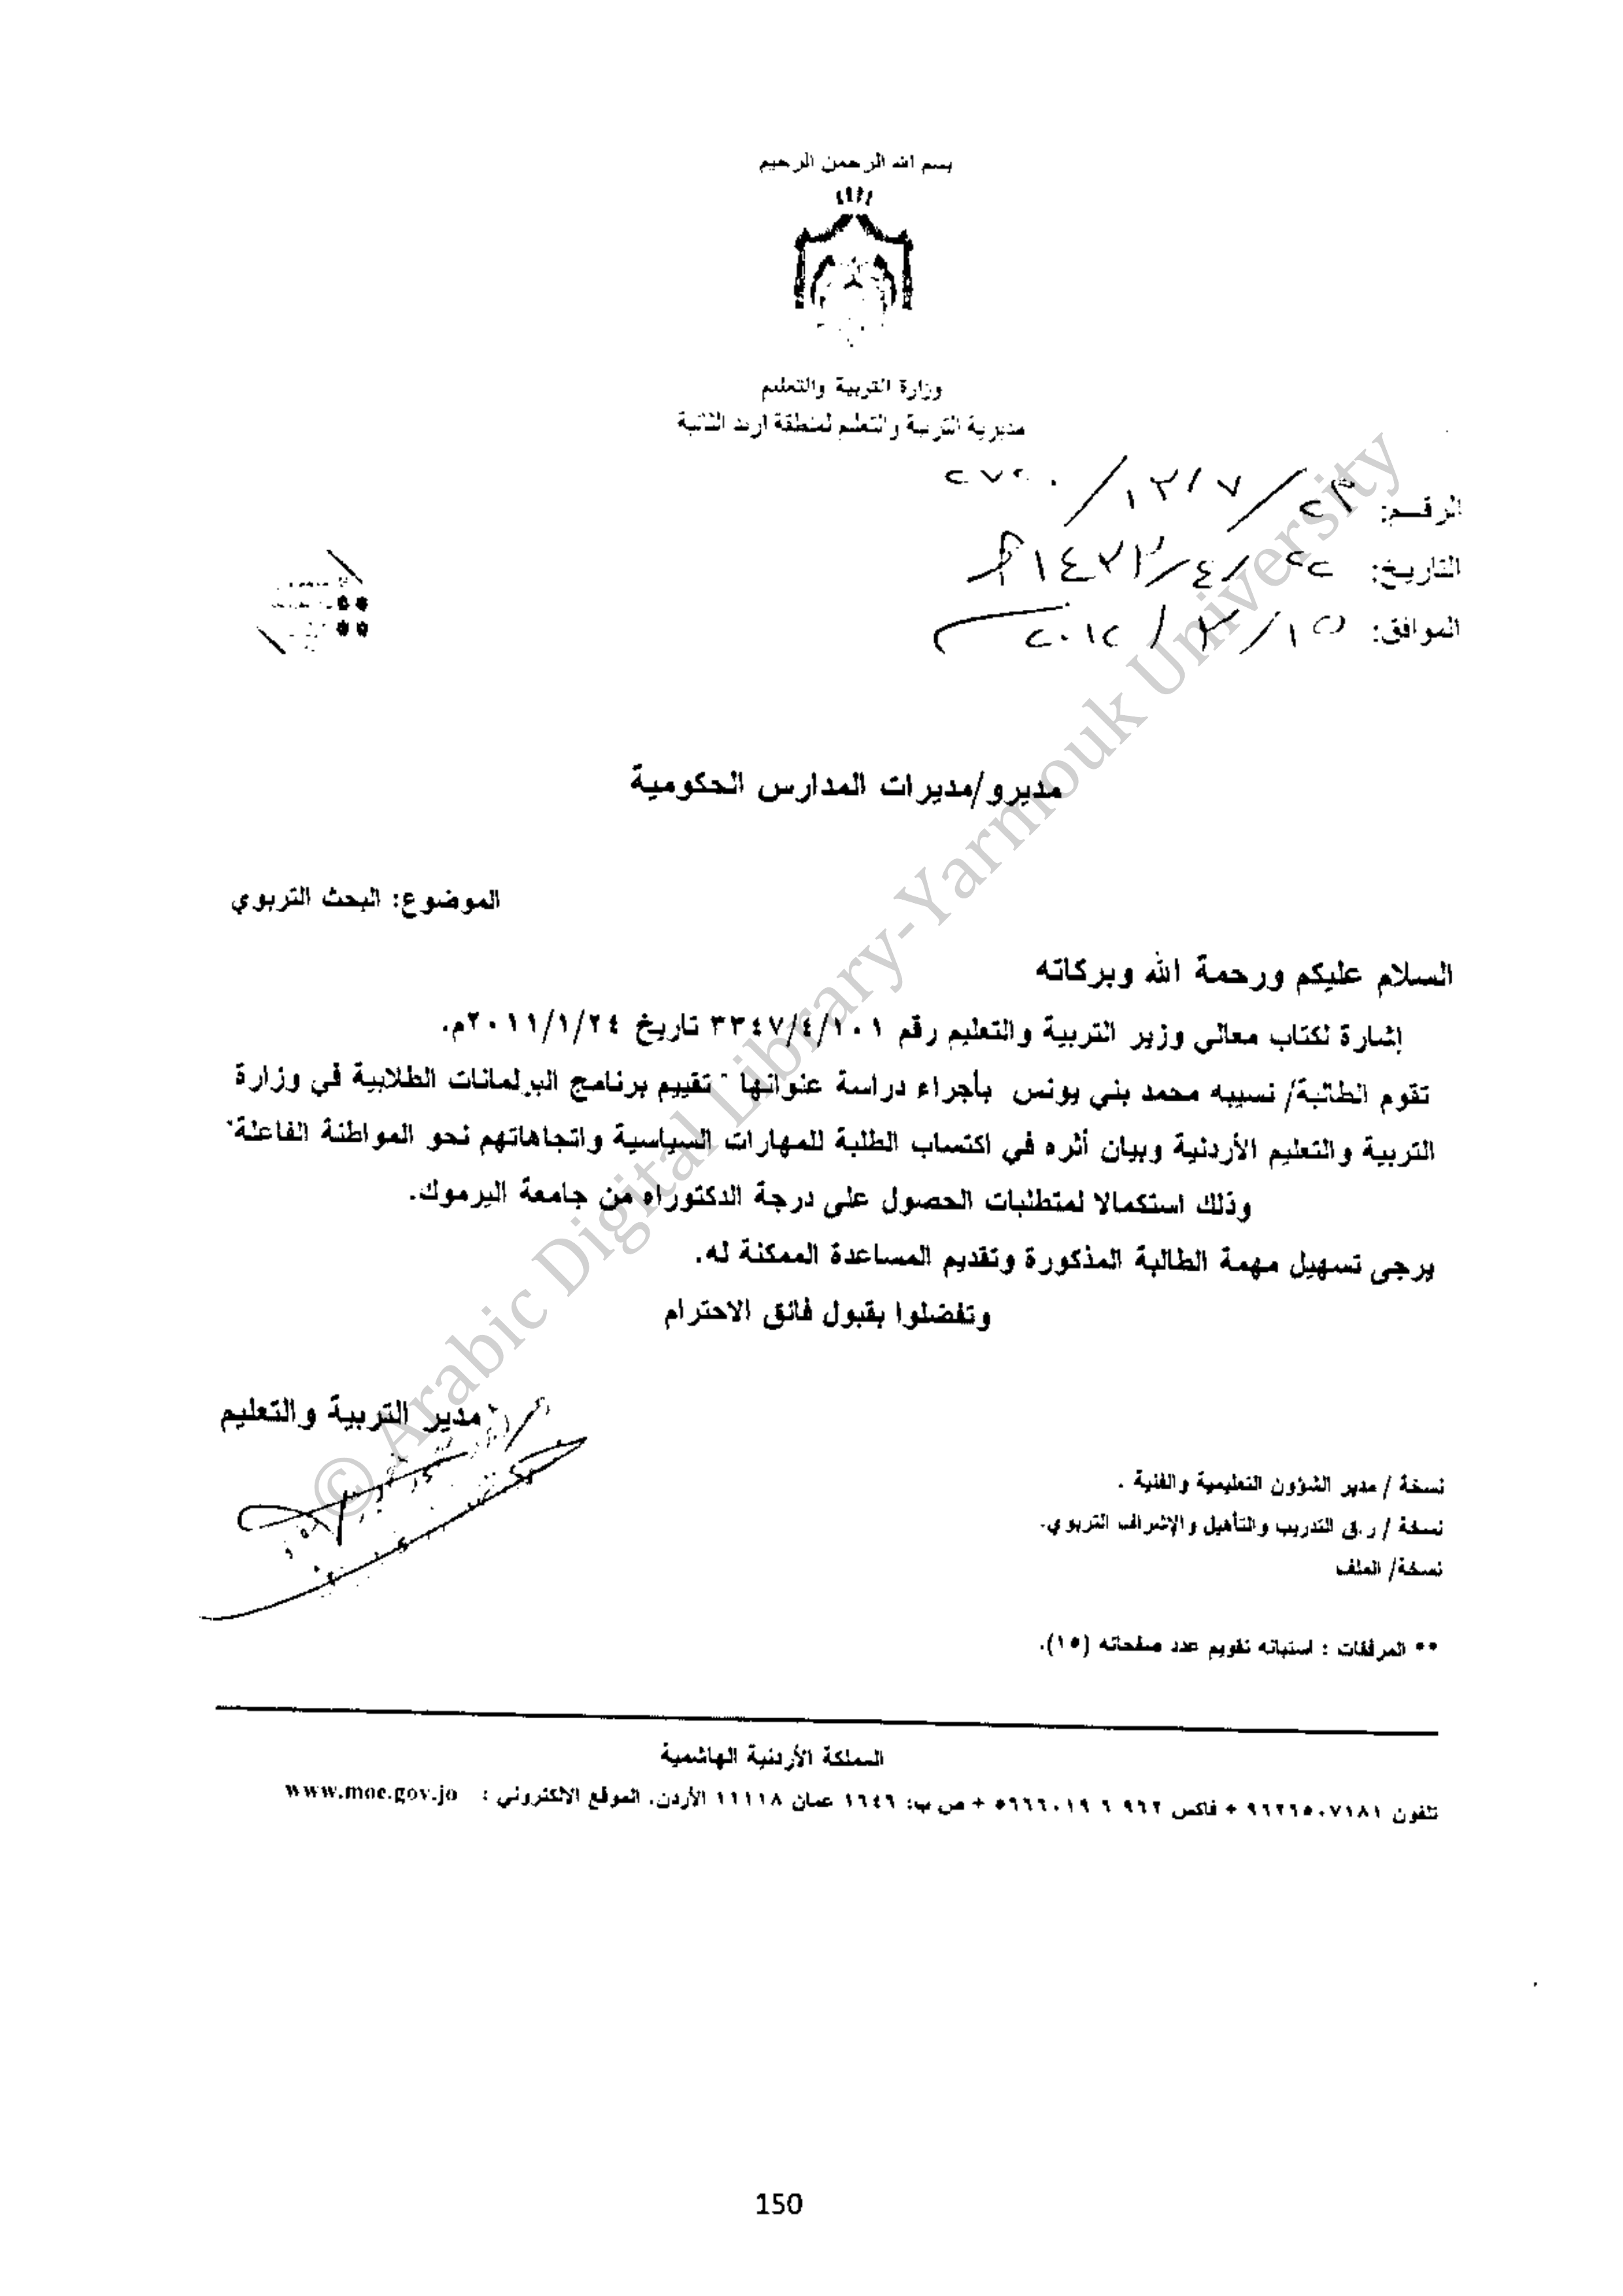 بسم الله الرحمن الرحيم
وزارة التربية والتعليم
مديرية التربية والتعليم لمنطقة اربد الثانية
الرقم:
التاريخ: ٢٢/٤/١٤٣٣
الموافق: ١٥/٣/٢٠١٢
مديرو/مديرات المدارس الحكومية
الموضوع: البحث التربوي
السلام عليكم ورحمة الله وبركاته
إشارة لكتاب معالي وزير التربية والتعليم رقم ٣٣٤٧/٤/١٠١ تاريخ ٢٠١١/١/٢٤م.
تقوم الطالبة/ نسيبه محمد بني يونس بأجراء دراسة عنوانها " تقييم برنامج البرلمانات الطلابية في وزارة
التربية والتعليم الأردنية وبيان أثره في اكتساب الطلبة للمهارات السياسية واتجاهاتهم نحو المواطنة الفاعلة"
وذلك استكمالا لمتطلبات الحصول على درجة الدكتوراه من جامعة اليرموك.
يرجى تسهيل مهمة الطالبة المذكورة وتقديم المساعدة الممكنة له.
وتفضلوا بقبول فائق الاحترام
مدير التربية والتعليم
نسخة / مدير الشؤون التعليمية والفنية .
نسخة / ر.ق التدريب والتأهيل والإشراف التربوي.
نسخة/ الملف
** المرفقات : استبانه تقويم عدد صفحاته (١٥).
المملكة الأردنية الهاشمية
تلفون ٩٦٢٦٥٠٧١٨١ + فاكس ٩٦٢ ٦ ٥٦٦٦٠١٩ + ص ب: ١٦٤٦ عمان ١١١١٨ الأردن. الموقع الالكتروني : www.moe.gov.jo
© Arabic Digital Library-Yarmouk University
150